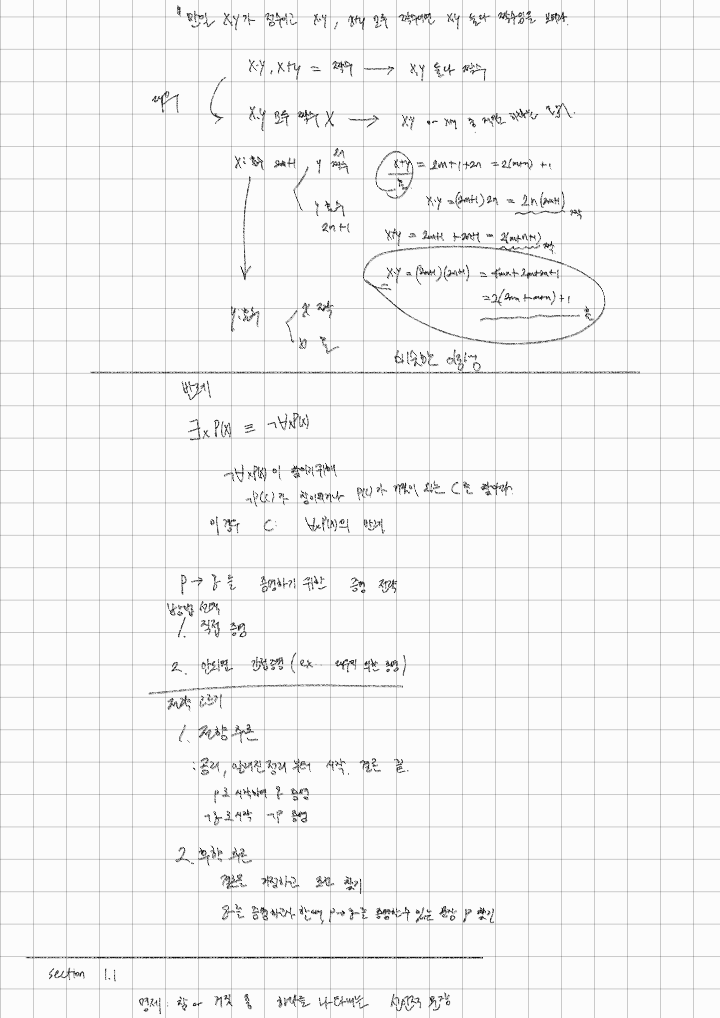 만일 x,y가 정수이고 x·y, x+y 모두 짝수이면 x,y 둘다 짝수임을 보여라.
x·y, x+y = 짝수 → x,y 둘다 짝수
대우
x,y 모두 짝수 X → x·y or x+y 중
x: 홀수 2m+1 y 짝수 2n x+y = 2m+1+2n = 2(m+n)+1
홀
x·y = (2m+1)2n = 2n(2m+1) 짝
y 홀수 2n+1 x+y = 2m+1+2n+1 = 2(m+n+1) 짝
x·y = (2m+1)(2n+1) = 4mn+2m+2n+1
= 2(2mn+m+n)+1 홀
y: 홀수 x 짝수
x 홀
반례
∃x P(x) ≡ ¬∀xP(x)
¬∀xP(x)이 참이기 위해
¬P(c)가 참이되거나 P(c)가 거짓이 되는 C를 찾아라.
이 경우 C: ∀xP(x)의 반례
p → q 를 증명하기 위한 증명 전략
방법 선택
1. 직접 증명
2. 안되면 간접증명 (ex. 대우에 의한 증명)
전략 고르기
1. 전향추론
: 공리, 알려진 정리 부터 시작. 결론 끝.
p로 시작하여 q 증명
¬q로 시작 ¬p 증명
2. 후향 추론
결론을 가정하고 조건 찾기
q를 증명하고자 한다면, p → q를 증명할 수 있는 문장 p 찾기
section 1.1
명제: 참 or 거짓 중 하나를 나타내는 선언적 문장